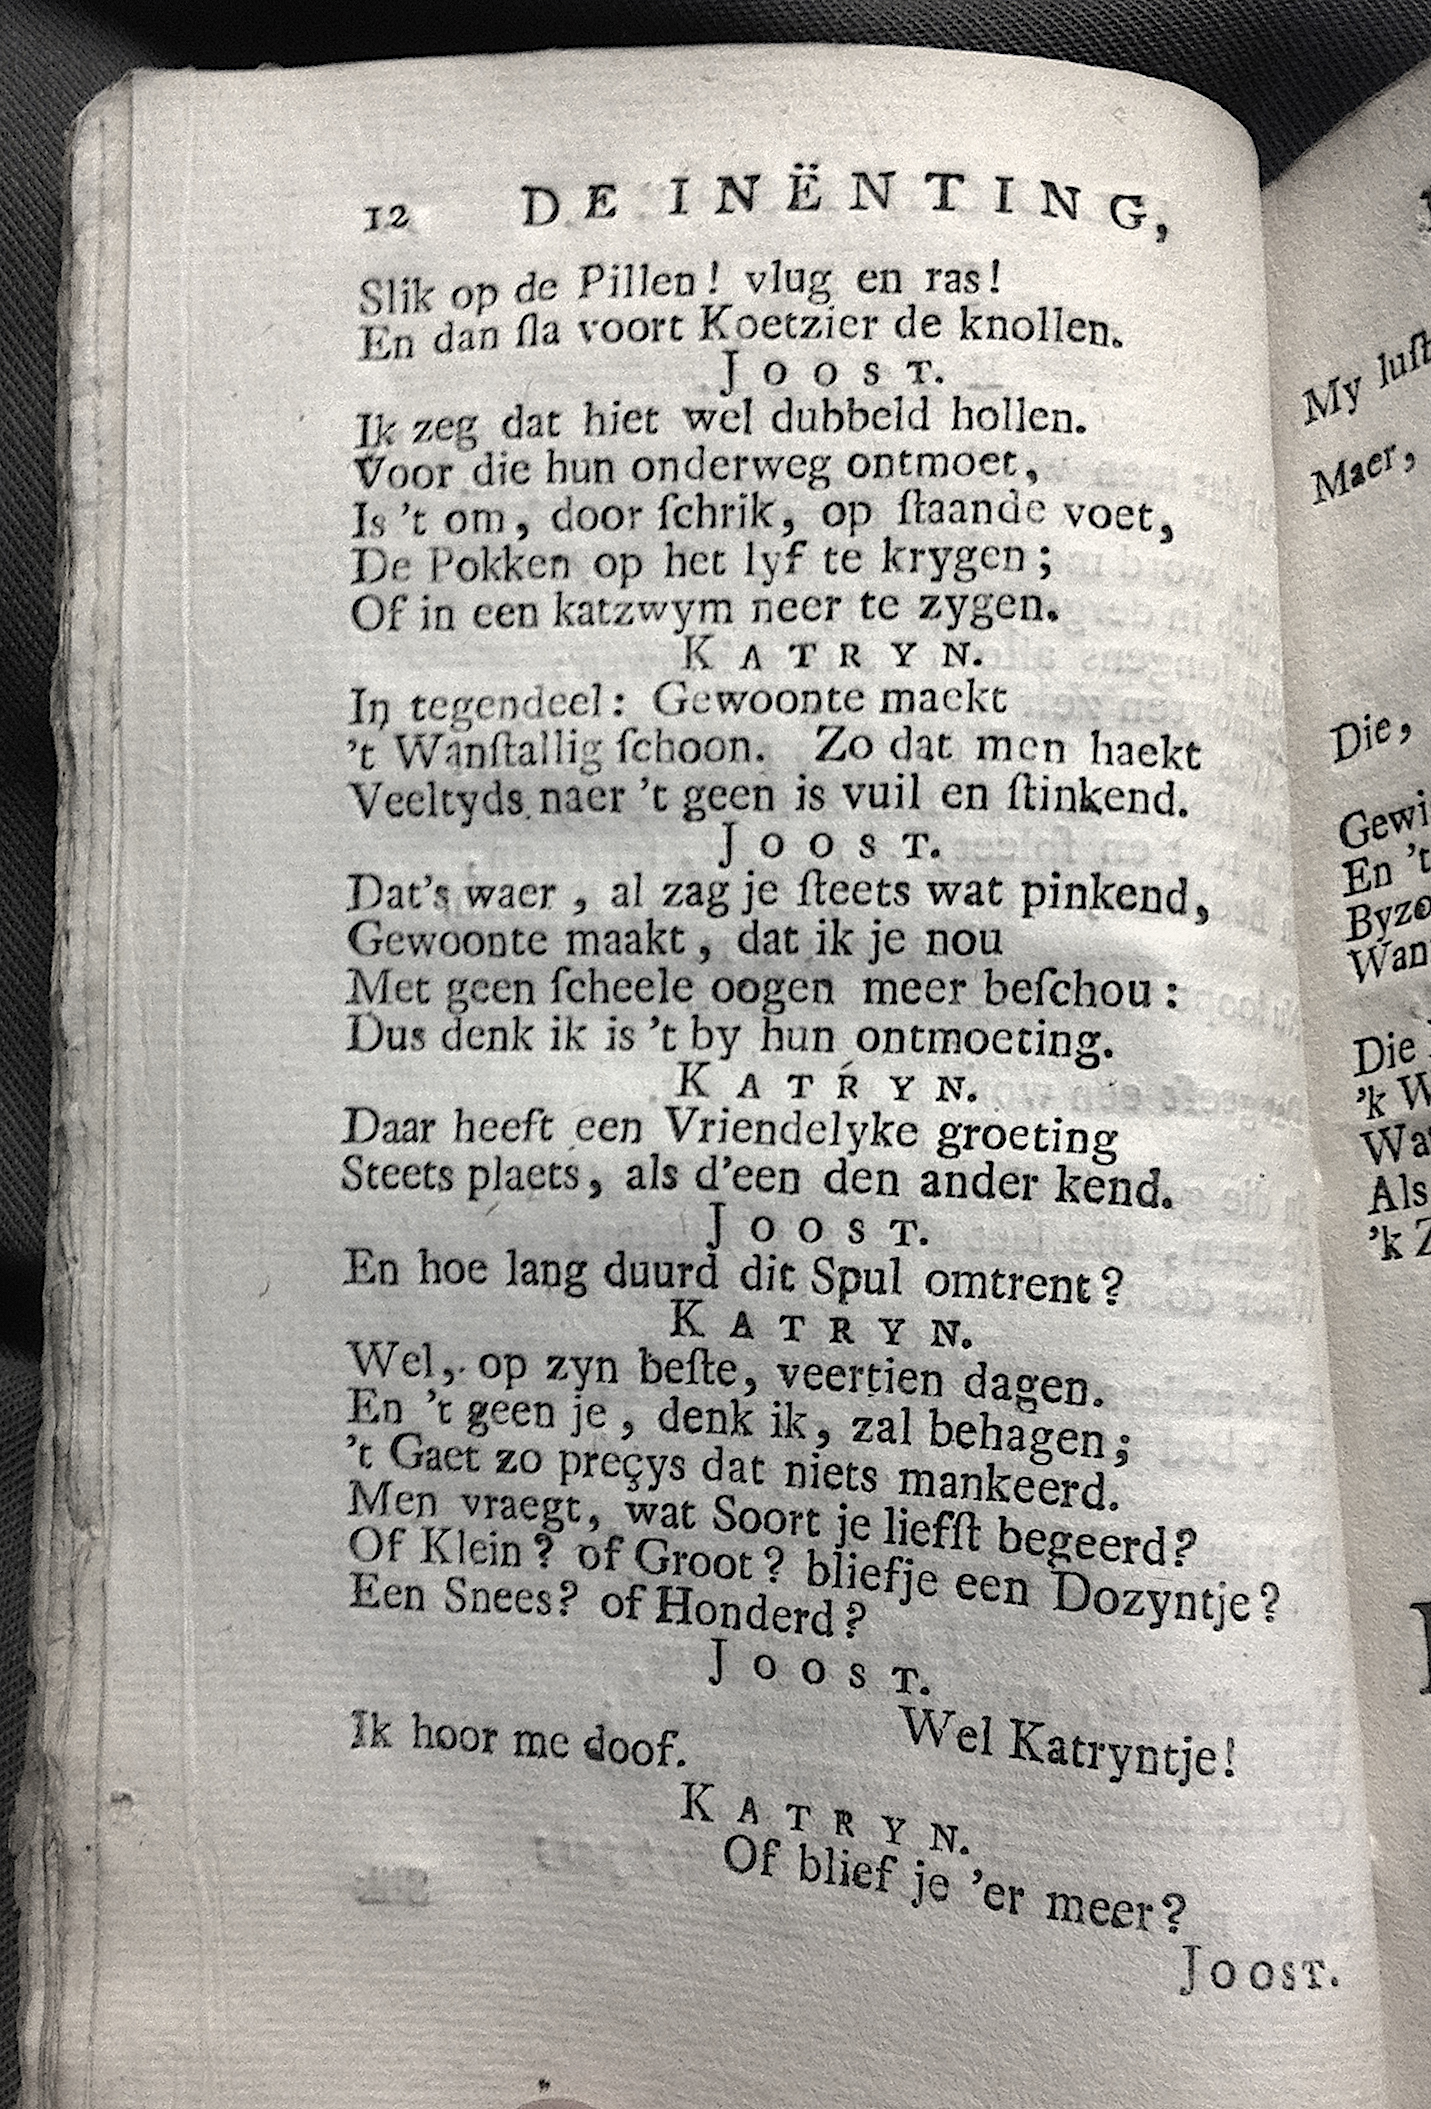 12 DE INËNTING,
Slik op de Pillen! vlug en ras!
En dan ſla voort Koetzier de knollen.
JOOST.
Ik zeg dat hiet wel dubbeld hollen.
Voor die hun onderweg ontmoet,
Is 't om, door ſchrik, op ſtaande voet,
De Pokken op het lyf te krygen;
Of in een katzwym neer te zygen.
KATRYN.
In tegendeel: Gewoonte maekt
't Wanſtallig ſchoon. Zo dat men haekt
Veeltyds naer 't geen is vuil en ſtinkend.
JOOST.
Dat's waer, al zag je ſteets wat pinkend,
Gewoonte maakt, dat ik je nou
Met geen ſcheele oogen meer beſchou:
Dus denk ik is 't by hun ontmoeting.
KATRYN.
Daar heeft een Vriendelyke groeting
Steets plaets, als d'een den ander kend.
JOOST.
En hoe lang duurd dit Spul omtrent?
KATRYN.
Wel, op zyn beſte, veertien dagen.
En 't geen je, denk ik, zal behagen;
't Gaet zo preçys dat niets mankeerd.
Men vraegt, wat Soort je liefſt begeerd?
Of Klein? of Groot? bliefje een Dozyntje?
Een Snees? of Honderd?
JOOST.
Wel Katryntje!
Ik hoor me doof.
KATRYN.
Of blief je 'er meer?
JOOST.
My luſt
Maer,
Die,
Gewi
En 't
Byzo
Wan
Die
'k W
Wa
Als
'k Z